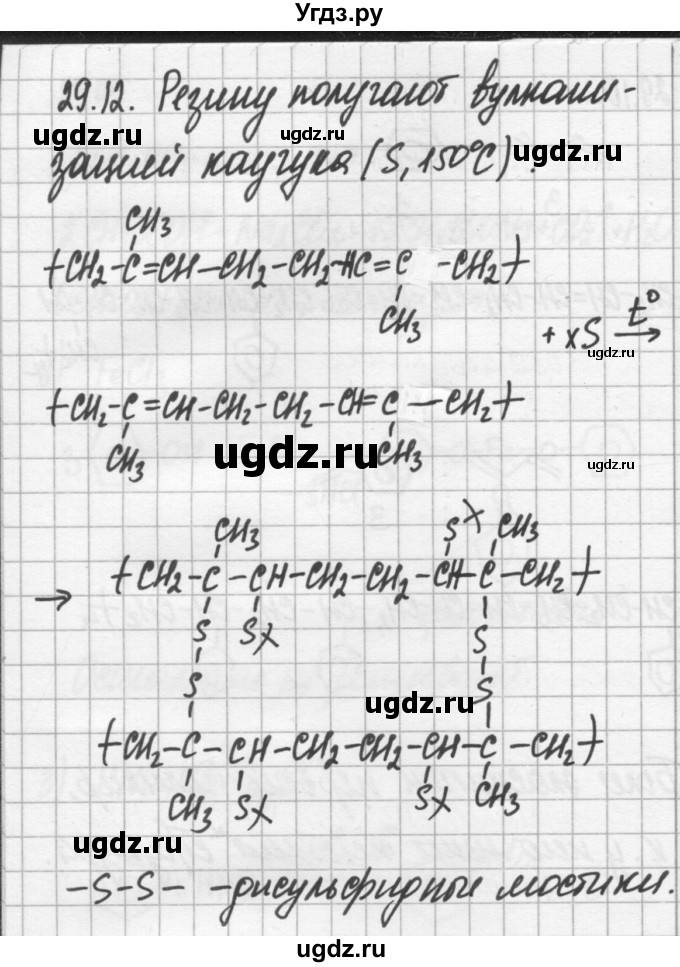 Угдз.ру
29.12. Резину получают вулкани-
зацией каучука (S, 150°C).
ugdz.ru ugdz.ru ugdz.ru
CH3
+CH2-C=CH-CH2-CH2-HC=C-CH2+
CH3
+ xS t° →
ugdz.ru
+CH2-C=CH-CH2-CH2-CH=C-CH2+
CH3 CH3
ugdz.ru ugdz.ru
CH3 SX CH3
→ +CH2-C-CH-CH2-CH2-CH-C-CH2+
S SX S
S S
ugdz.ru
+CH2-C-CH-CH2-CH2-CH-C-CH2+
CH3 SX SX CH3
ugdz.ru ugdz.ru
-S-S- -дисульфидные мостики.
ugdz.ru